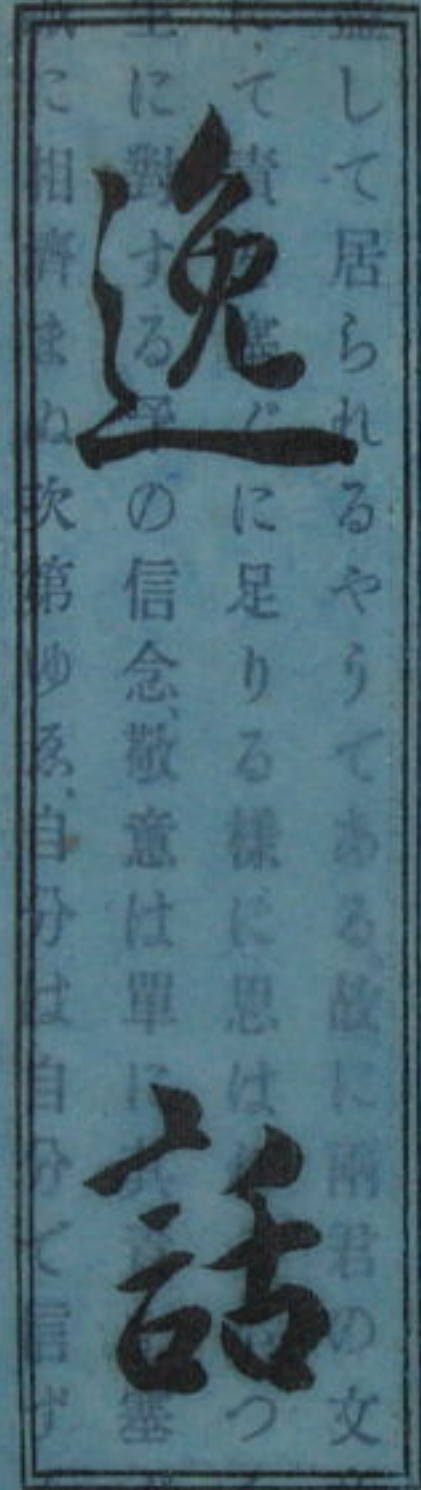 逸話
して居られるやうである。故に兩君の文
て責を塞ぐに足りる樣に思は
に對する予の信念、敬意は單に
に相濟まぬ次第ゆゑ、自分は自分で信ず